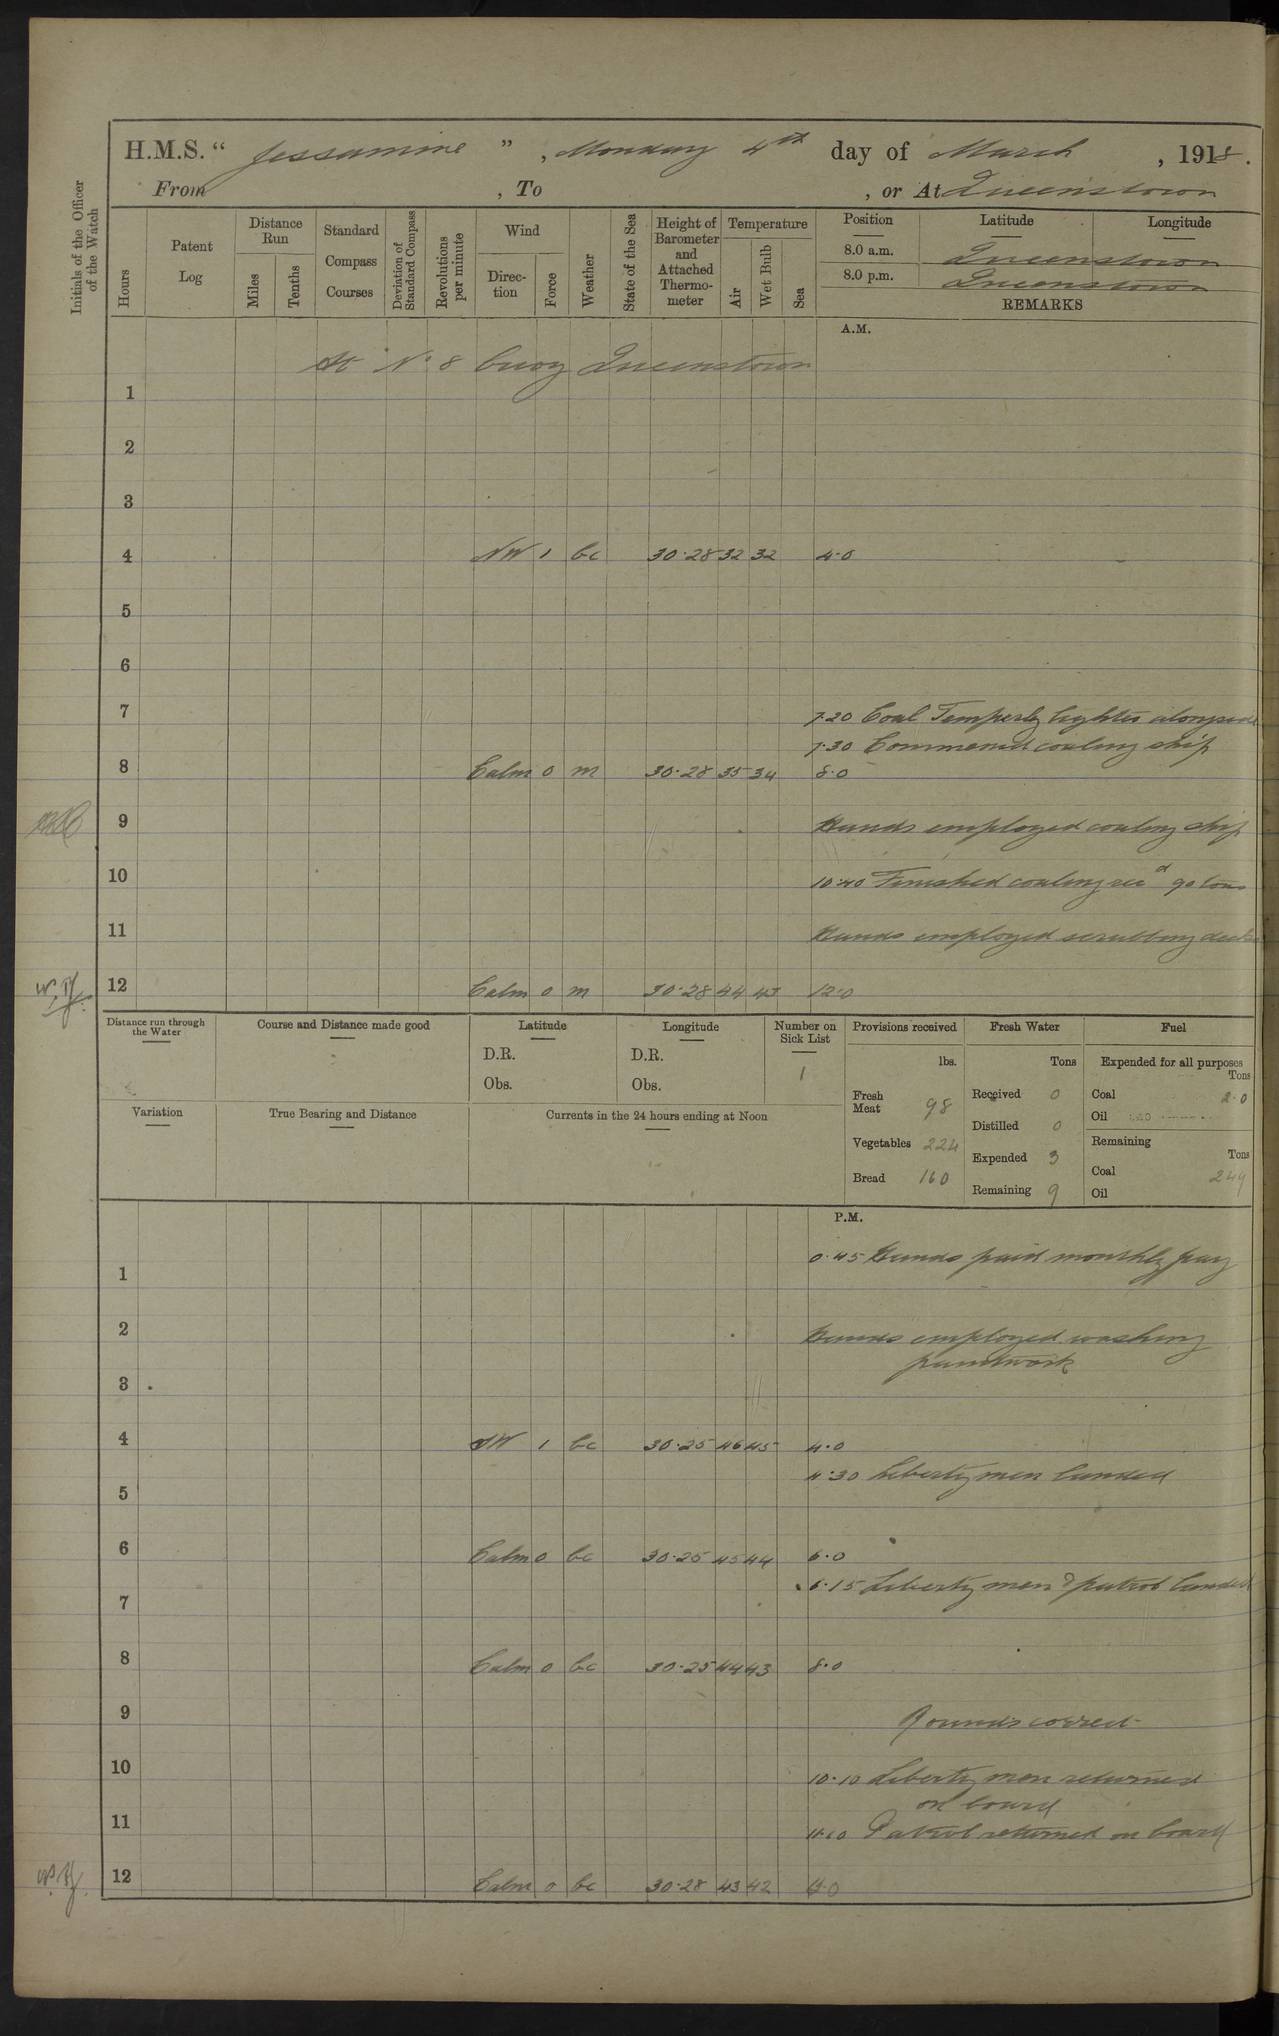 H.M.S. “ Jessamine ” , Monday 4th day of March , 1918.
From , To , or At Queenstown
Initials of the Officer of the Watch
Hours
Patent Log
Distance Run
Miles
Tenths
Standard Compass Courses
Deviation of Standard Compass
Revolutions per minute
Wind
Direction
Force
Weather
State of the Sea
Height of Barometer and Attached Thermometer
Temperature
Air
Wet Bulb
Sea
Position Latitude Longitude
8.0 a.m. Queenstown
8.0 p.m. Queenstown
REMARKS
A.M.
At No 8 buoy Queenstown
1
2
3
4 NW 1 bc 30.28 32 32 4.0
5
6
7
7.20 Coal Temperly lighter alongside
7.30 Commenced coaling ship
8 Calm 0 m 30.28 35 34 8.0
9 Hands employed coaling ship
10
10.40 Finished coaling recd 90 tons
11 Hands employed scrubbing decks
12 Calm 0 m 30.28 44 43 12.0
Distance run through the Water
Course and Distance made good
Latitude
D.R.
Obs.
Longitude
D.R.
Obs.
Number on Sick List
1
Provisions received
lbs.
Fresh Meat 98
Vegetables 224
Bread 160
Fresh Water
Tons
Received 0
Distilled 0
Expended 3
Remaining 9
Fuel
Expended for all purposes
Tons
Coal 2.0
Oil
Remaining
Tons
Coal 249
Oil
Variation
True Bearing and Distance
Currents in the 24 hours ending at Noon
P.M.
0.45 Hands paid monthly pay
1
2 Hands employed washing
paintwork
3
4 NW 1 bc 30.25 46 45 4.0
4.30 Liberty men landed
5
6 Calm 0 bc 30.25 45 44 6.0
6.15 Liberty men & patrol landed
7
8 Calm 0 bc 30.25 44 43 8.0
9 Rounds correct
10
10.10 Liberty men returned
on board
11 Patrol returned on board
12 Calm 0 bc 30.28 43 42